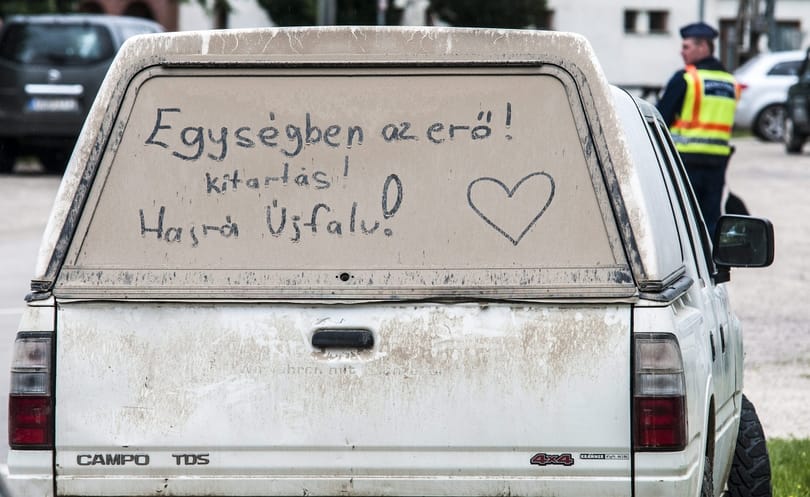 Egységben az erő!
kitartás!
Hajrá Újfalu!
CAMPO TDS
4x4